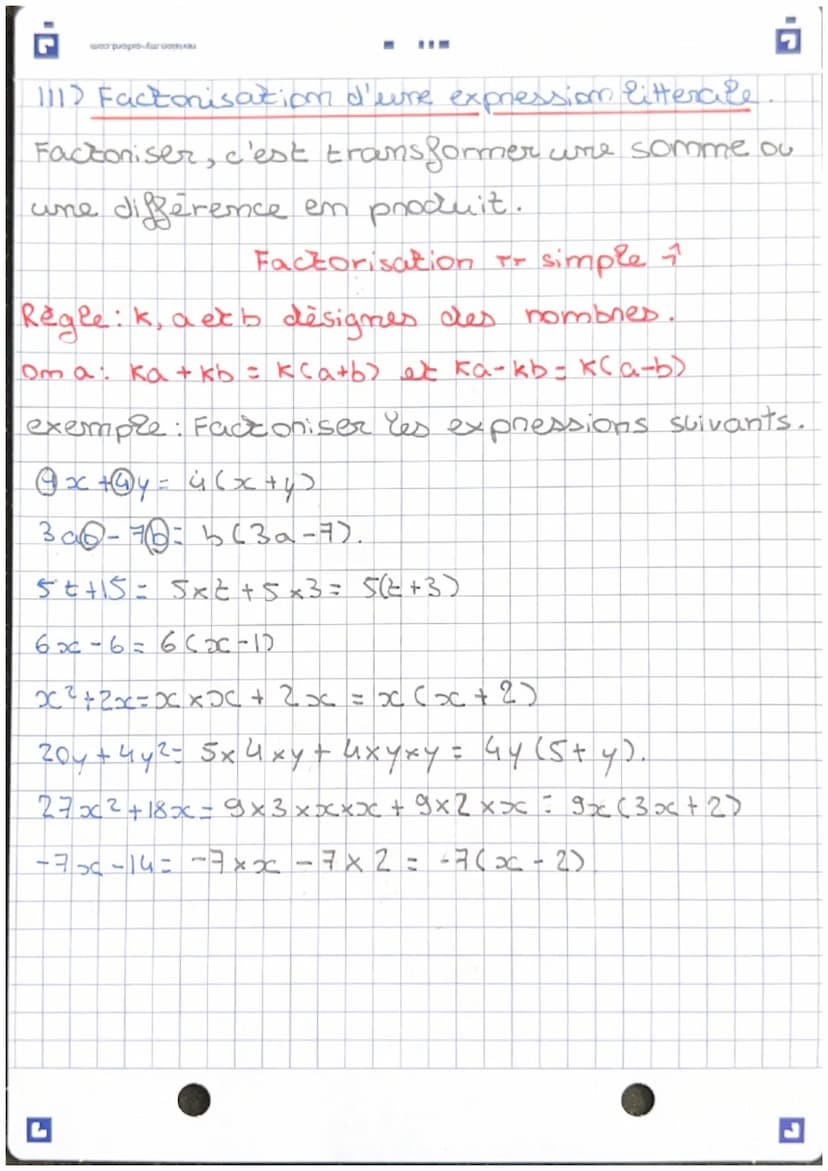 revision.my-oxford.com
III) Factorisation d'une expression litterale.
Factoriser, c'est transformer une somme ou
une différence en produit.
Factorisation "simple"
Règle : K, a et b désignes des nombres.
on a : Ka + Kb = K(a+b) et Ka - kb = K(a-b)
exemple : Factoriser les expressions suivants.
4x + 4y = 4(x+y)
3ab - 7b = b(3a-7).
5t + 15 = 5×t + 5×3 = 5(t+3)
6x - 6 = 6(x-1)
x² + 2x = x×x + 2x = x(x+2)
20y + 4y² = 5×4×y + 4×y×y = 4y(5+y).
27x² + 18x = 9×3×x×x + 9×2×x = 9x(3x+2)
-7x - 14 = -7×x - 7×2 = -7(x-2)